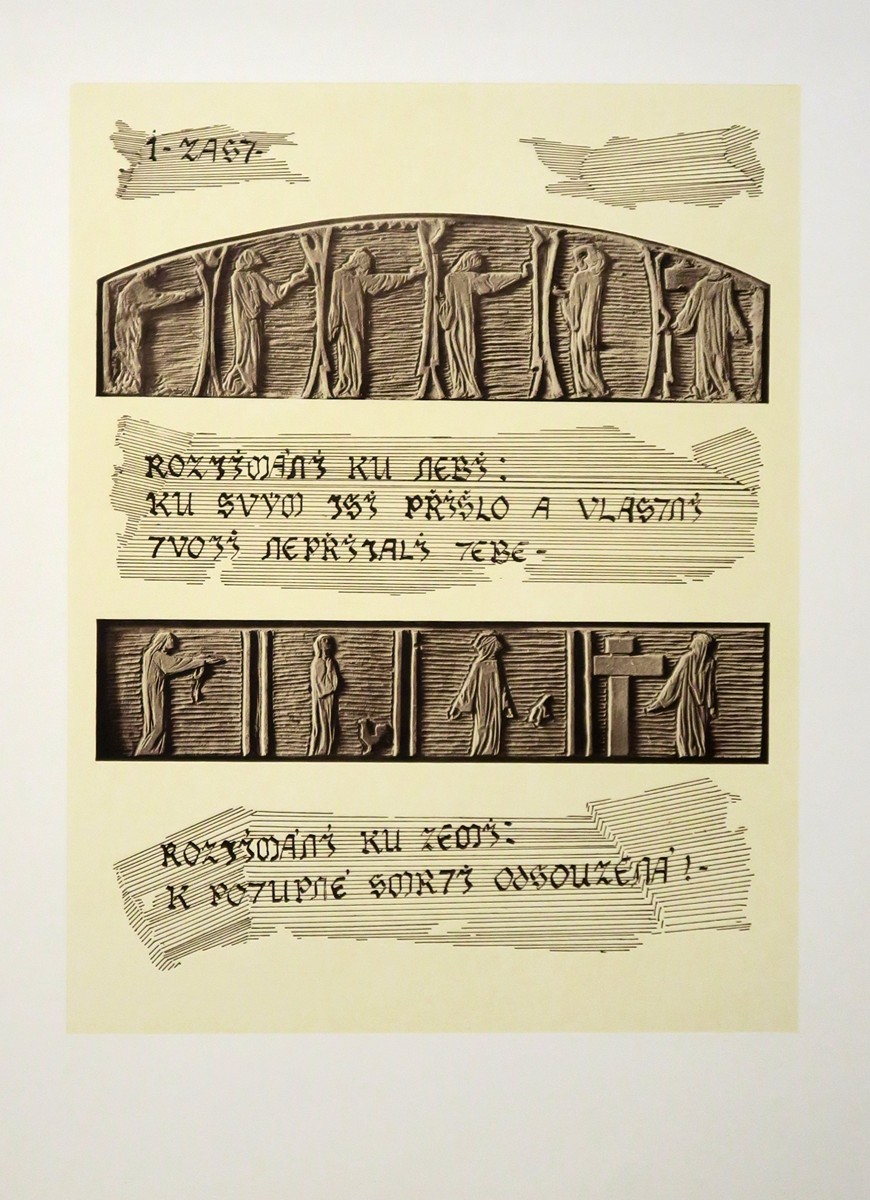 I- ZAST-
ROZJÍMÁNÍ KU NEBI:
KU SVÝM JSI PŘIŠLO A VLASTNÍ
TVOJI NEPŘIJALI TEBE-
ROZJÍMÁNÍ KU ZEMI:
K POTUPNÉ SMRTI ODSOUZENÁ!-